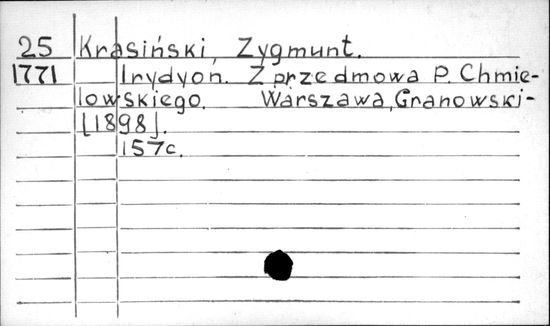 25 Krasiński, Zygmunt.
1771 Irydyon. Z przedmowa P. Chmie-
lowskiego. Warszawa, Granowski-
[1898].
157c.